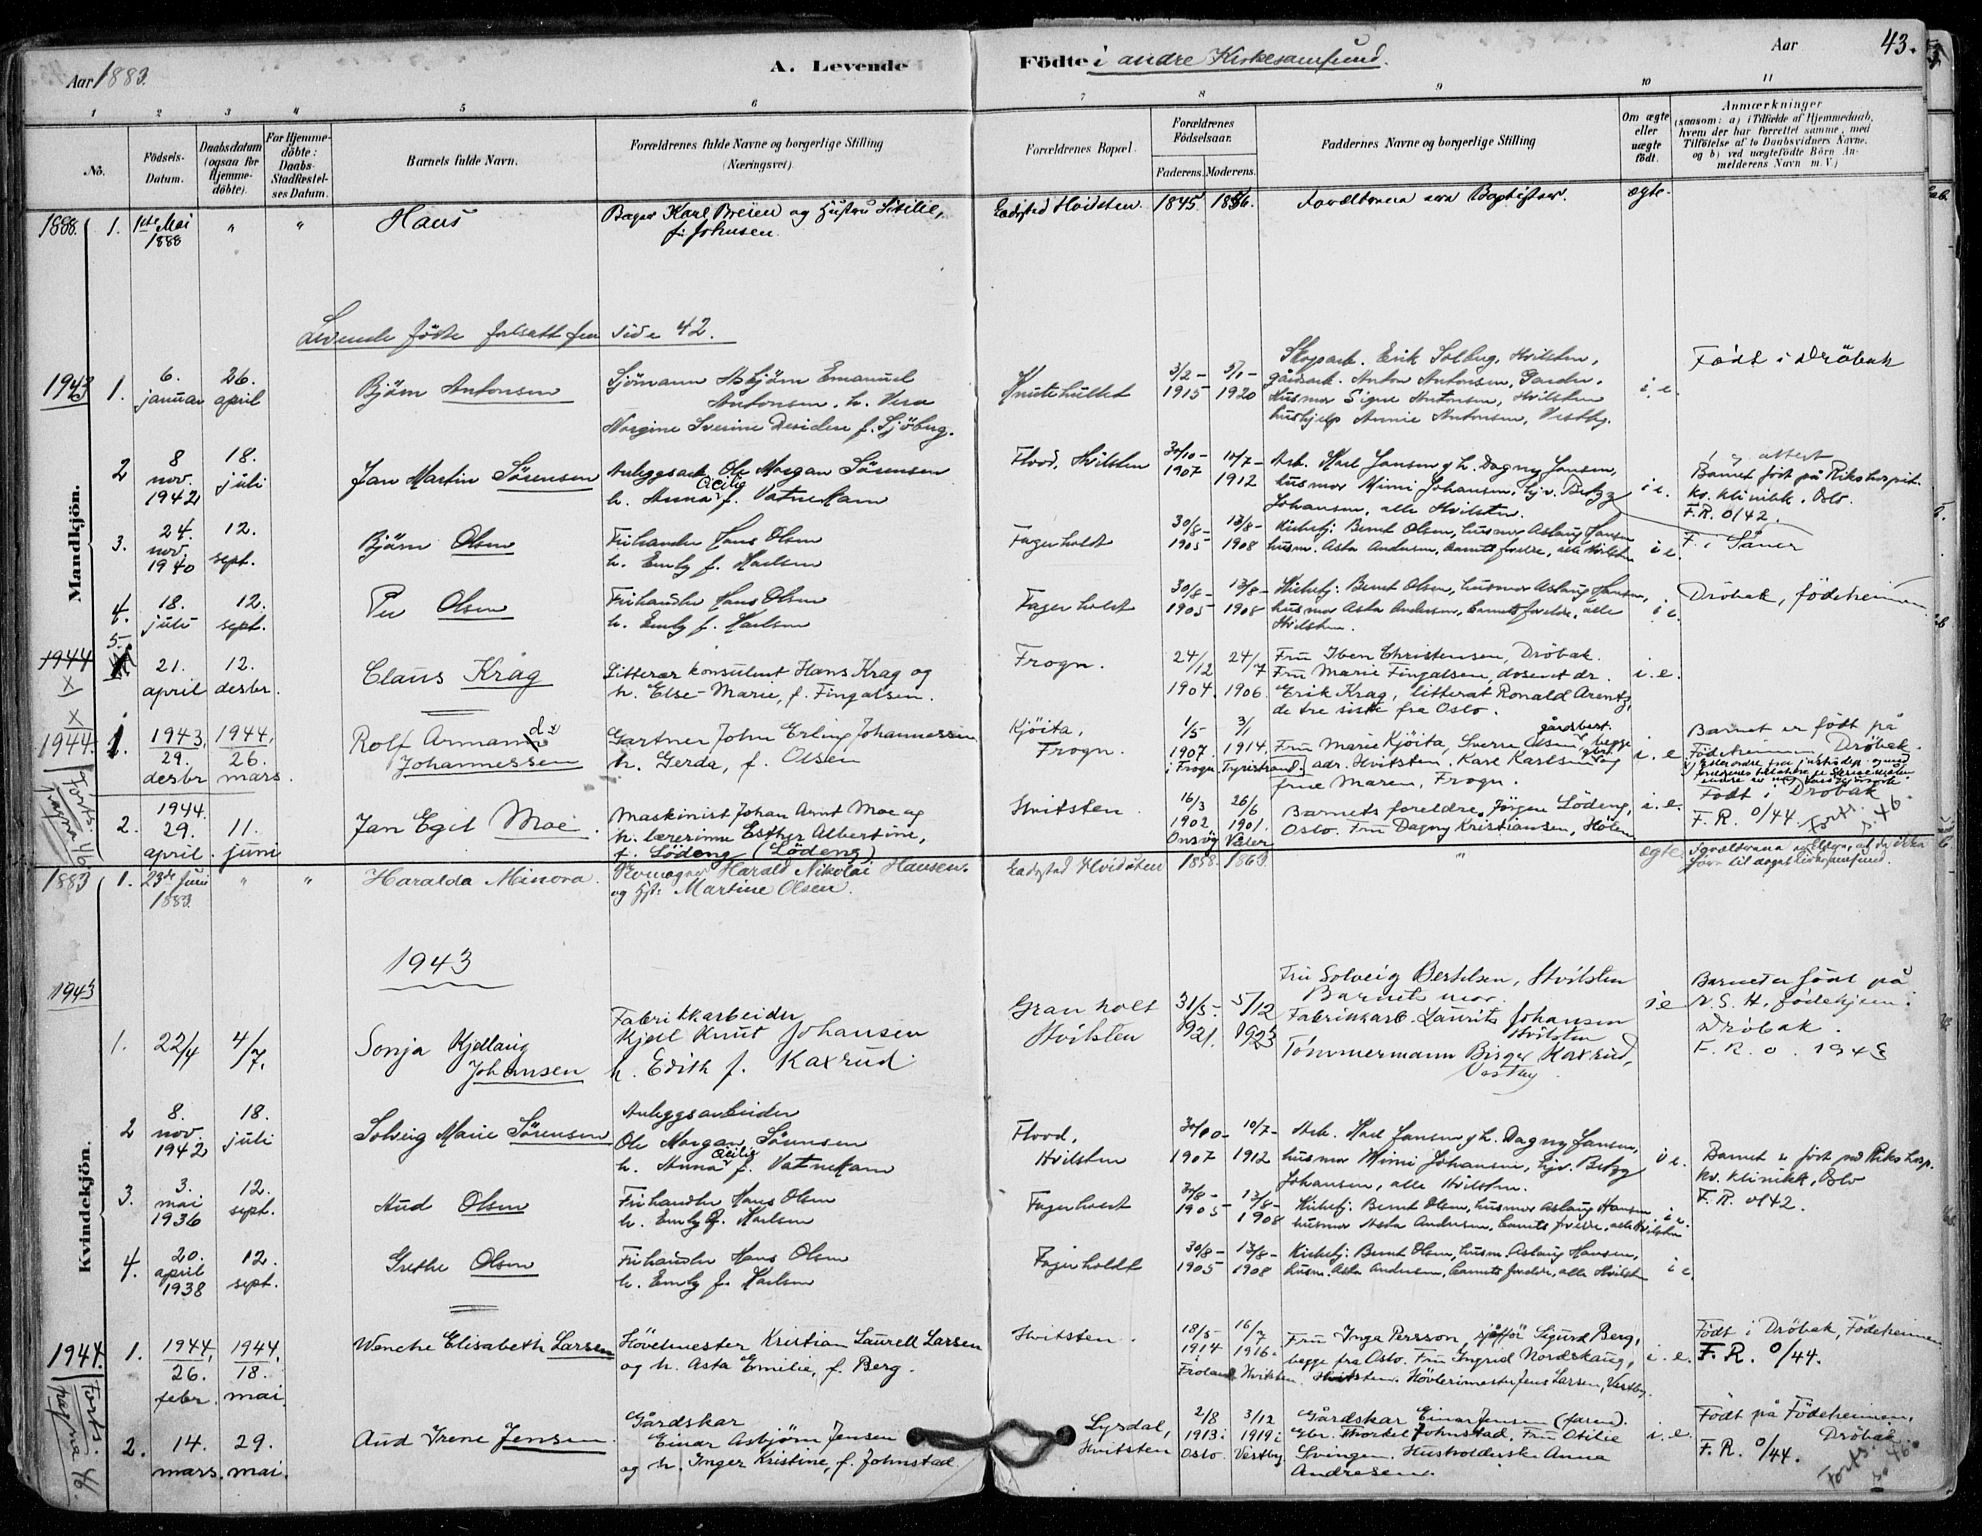 Aar 1883.
A. Levende
Födte i andre Kirkesamfund.
Aar
43.
1 2 3 4 5 6 7 8 9 10 11
No.
Födsels-Datum.
Daabsdatum (ogsaa for Hjemmedöbte).
For Hjemmedöbte: Daabs-Stadfæstelses Datum.
Barnets fulde Navn.
Forældrenes fulde Navne og borgerlige Stilling (Næringsvei).
Forældrenes Bopæl.
Forældrenes Födselsaar.
Faderens. Moderens.
Faddernes Navne og borgerlige Stilling
Om ægte eller uægte födt.
Anmærkninger
(saasom: a) i Tilfælde af Hjemmedaab,
hvem der har forrettet samme, med
Tilföielse af to Daabsvidners Navne,
og b) ved uægtefödte Börn Anmelderens Navn m. V.)
Mandkjön.
1888. 1. 1ste Mai 1888 " " Hans
Bager Karl Breien og Hustru
f. Johnsen.
Hvidsten 1845. 1856. Forældrene ere Baptister. ægte.
Levende födte fortsatt fra side 42.
1943 1. 6. januar 26. april
Björn Antonsen
Sjömann Asbjörn Emanuel
Antonsen. h. Vera
f. Sjöberg.
Knutehullet 3/2- 1915 5/1- 1920
Skogsarb. Erik Solberg, Hvitsten,
gårdsarb. Anton Antonsen, Garder.
Husmor Signe Antonsen, Hvitsten
hushjelp Annie Antonsen, Vestby.
i. e.
Födt i Dröbak
2 8 nov. 1942 18. juli
Jan Martin Sörensen
Anleggsarb. Ole Morgan Sörensen
h. Anna Cecilie f. Vatnekam
Flood, Hvitsten 30/10- 1907 10/7- 1912
Arb. Karl Jansen og h. Dagny Jansen,
husmor Mimi Johansen,
Johansen, alle Hvitsten.
i e.
Barnet föt på Rikshospit.
kv. klinikk, Oslo.
F.R. 0/42.
3. 24. nov. 1940 12. sept.
Björn Olsen
Frihandler Hans Olsen
h. Emly f. Karlsen
Fagerholdt 30/8- 1905 13/8- 1908
Kirketj. Bernt Olsen, husmor Aslaug Hansen
husm. Asta Andersen, barnets foreldre, alle Hvitsten
i e
F. i Såner
4. 18. juli 12. sept.
Per Olsen
Frihandler Hans Olsen
h. Emly f. Karlsen
Fagerholdt 30/8- 1905 13/8- 1908
Kirketj. Bernt Olsen, husmor Aslaug Hansen,
husmor Asta Andersen, barnets foreldre, alle
Hvitsten.
i e.
Dröbak, födeheimen
5. 1944 x) 21. april 12. desbr.
Claus Krag
Litterær konsulent Hans Krag og
h. Else-Marie, f. Fingalsen.
Frogn. 24/12 1904. 24/7 1906.
Fru Iben Christensen, Dröbak.
Fru Marie Fingalsen, dosent dr.
Erik Krag, litterat Ronald Arentz,
de tre siste fra Oslo.
i. e.
x 1944. 1. 1943, 29. desbr 1944, 26. mars.
Rolf Armann dx
Johannessen
Gartner John Erling Johannessen
h. Gerda, f. Olsen
Kjöita, Frogn. 1/5 1907 i Frogn 3/1 1914. Tyristrand.
Fru Marie Kjöita, Sverre Olsen, gårdsbest. begge
adr. Hvitsten. Karl Karlsen gbr. og
frue Maren, Frogn.
i. e.
Barnet er födt på
Födeheimen, Dröbak.
2. 1944. 29. april. 11. juni
Jan Egil Moe.
Maskinist Johan Arnt Moe og
h. lærerinne Esther Albertine,
f. Lödeng (Lödeng)
Hvitsten 16/3 1902 Onsöy 26/6 1901. Våler
Barnets foreldre, Jörgen Lödeng,
Oslo. Fru Dagny Kristiansen, Hölen
i. e.
Födt i Dröbak
F. R. 0/44. Forts. s. 46.
Forts. pagina 46
Kvindekjön.
1883 1. 23de Juni 1883. " " Haralda Minora.
Harald Nikolai Hansen.
og Hst. Martine Olsen.
Hvidsten 1858. 1863. "
ægte.
1943
1943
1. 22/4 4/7.
Sonja Kjellaug
Johansen
Fabrikkarbeider
Kjell Knut Johansen
h. Edith f. Kaxrud.
Granholt
Hvitsten
31/5- 1921. 5/12 1923
Fru Solveig Bertelsen, Hvitsten
Barnets mor.
Fabrikkarb. Laurits Johansen
Hvitsten
Tömmermann Birger Kaxrud,
Vestby
i e
Barnet er födt på
N. S. H. födehjem.
Dröbak.
F. R. 0. 1943
2 8. nov. 1942 18. juli
Solveig Marie Sörensen
Anleggsarbeider
Ole Morgan Sörensen
h. Anna Cecilie f. Vatnekam
Flood,
Hvitsten
30/10- 1907 10/7- 1912
Arb. Karl Jansen og h. Dagny Jansen,
husmor Mimi Johansen,
Johansen, alle Hvitsten.
i e.
Barnet er föt ved Rikshosp.
kv. klinikk, Oslo
F. R. 0/42.
3. 3. mai 1936 12. sept.
Aud Olsen
Frihandler Hans Olsen
h. Emly f. Karlsen
Fagerholdt 30/8- 1905 13/8- 1908
Kirketj. Bernt Olsen, husmor Aslaug Hansen
husmor Asta Andersen, barnets foreldre, alle Hvitsten
i. e.
4. 20. april 1938 12. sept.
Grethe Olsen
Frihandler Hans Olsen
h. Emly f. Karlsen
Fagerholdt 30/8- 1905 13/8- 1908
Kirketj. Bernt Olsen, husm. Aslaug Hansen,
husm. Asta Andersen, barnets foreldre, alle Hvitsten
i e.
1944. 1. 1944, 26. febr. 1944, 18. mai.
Wenche Elisabeth Larsen
Hövelmester Kristian Laurell Larsen
og h. Asta Emilie, f. Berg.
Hvitsten. 18/5 1914 Froland 16/7 1916. Hvitsten.
Fru Inga Persson, sjåfför Sigurd Berg,
begge fra Oslo. Fru Ingrid Nordskaug,
Hvitsten. Hövlerimester Jens Larsen, Vestby.
i. e.
Födt i Dröbak, Födeheimen
F. R. 0/44.
2. 14. mars. 29. mai.
Aud Irene Jensen.
Gårdskar
Einar Asbjörn Jensen
og h. Inger Kristine, f. Johnstad
Lyrsdal,
Hvitsten
2/8 1913 i Oslo. 3/12 1919 i Vestby
Gårdskar Einar Jensen (faren).
Gbr. Thorkel Johnstad, Fru Otilie
Svingen. Husholderske Anna
Andresen.
i. e.
Födt på Födeheimen,
Dröbak.
F. R. 0/44.
Forts. s. 46.
Forts. pagina 46.